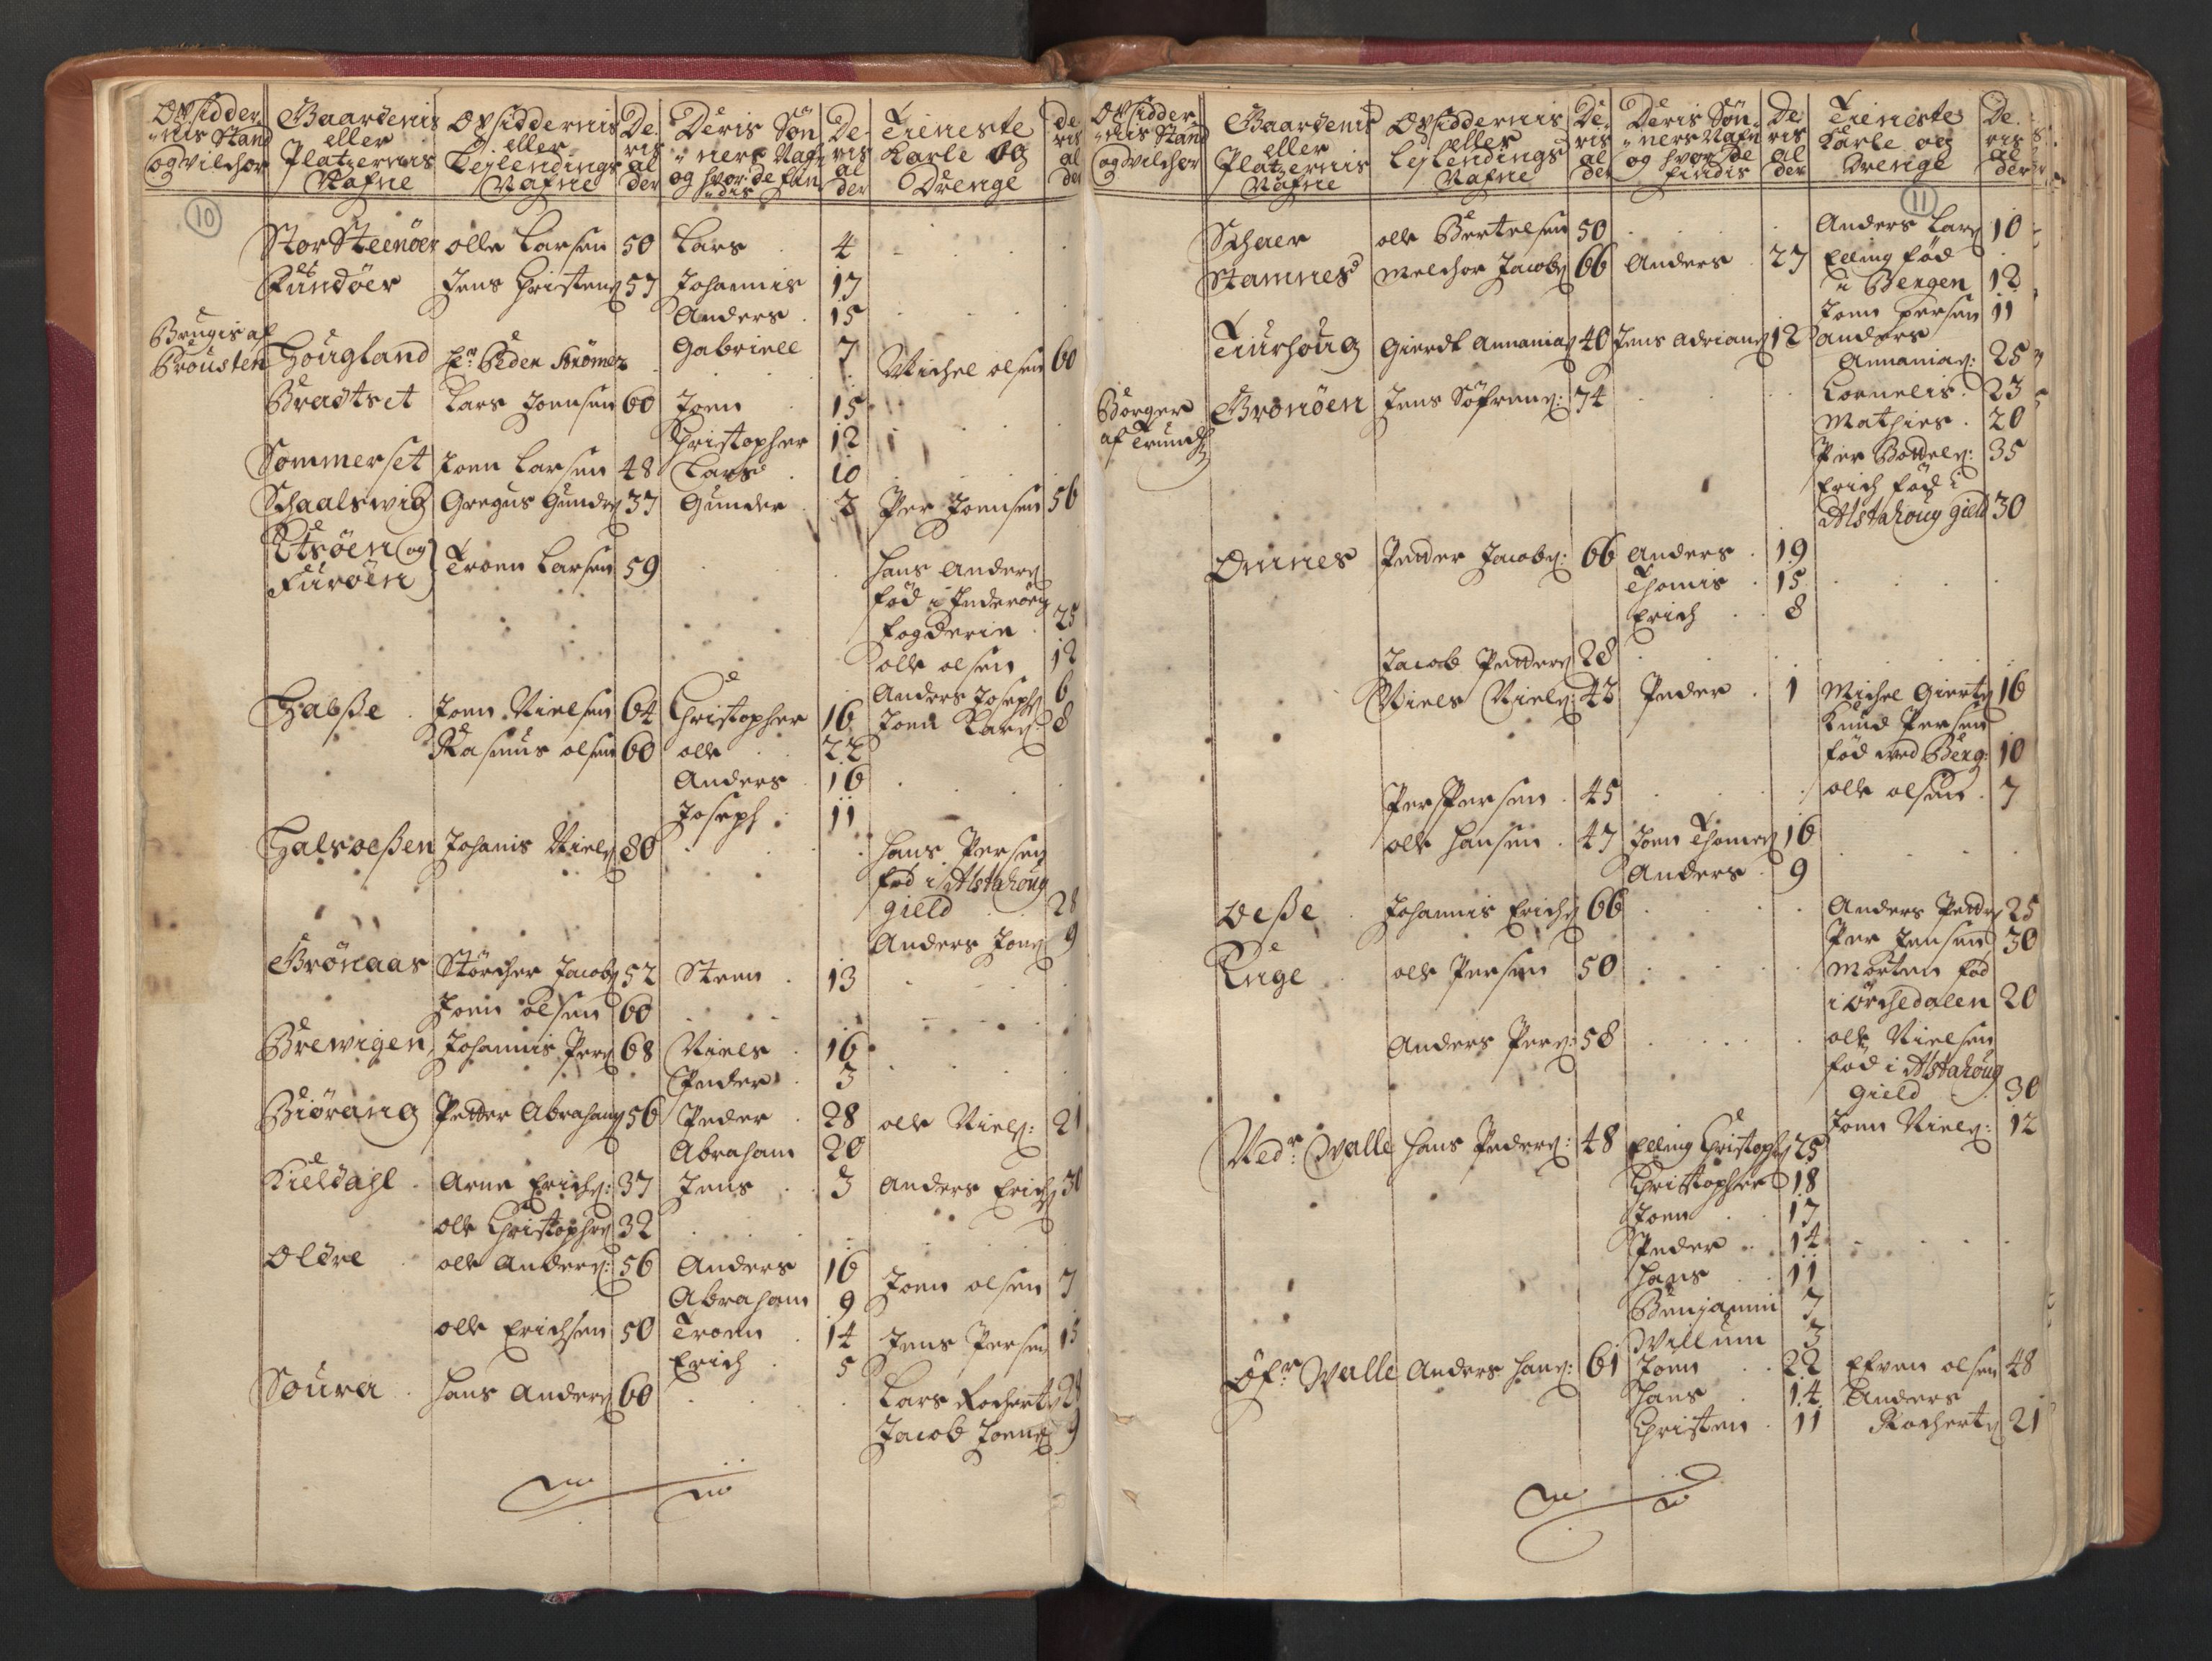 Opsidder
nis Stand
og Vilchor
Gaardenis
eller
Platzernis
Nafne
Opsiddernis
eller
Leylendings
Nafne
De
ris
al
der
Deris Søn
ners Nafn
og hvor de fin
dis
De
ris
al
der
Tieneste
Karle og
Drenge
de
ris
al
der
10
StorSteenøer Olle Larsen 50 Lars 4
Kundøer Jens Christens 57 Johannis 17
Anders 15
Brugis af
Prousten Hougland Hr Peder Strømer Gabriell 7 Michel olsen 60
Bradtset Lars Joensen 60 Joen 15
Christopher 12
Sommerset Joen Larsen 48 Lars 10
Schaalswig Gregus Gunders 37 Gunder 2 Per Joensen 56
Utsøen og
Furøen Troen Larsen 59 Hans Anders
fød i Inderøens
fogderie 25
olle olsen 12
Anders Josephs 6
Habße Joen Nielsen 64 Christopher 16 Joen Lars: 8
Rasmus olsen 60 olle 22
Anders 16
Joseph 11
Halsoeßen Johanis Niels 80 Hans Persen
fød i Alstahoug
gield 28
Anders Jons 9
Grønaas Størcher Jacobs 52 Steen 13
Joen olsen 60
Brewigen Johannis Pers 68 Niels 16
Peder 3
Biørang Petter Abrahams 56 Peder 28 olle Niels: 21
Abraham 20
Kieldahl Arne Erichs: 37 Jens 3 Anders Erichs 30
olle Christophers 32
Oldre olle Anders: 56 Anders 16 Joen olsen 7
Abraham 9
olle Erichsen 50 Troen 14 Jens Persen 15
Erich 5
Soura Hans Anders 60 Lars Rocherts 28
Jacob Joens 9
Opsidder
nis Stand
og Vilchor
Gaardenis
eller
Platzernis
Nafne
Opsiddernis
eller
Leylendings
Nafne
De
ris
al
der
Deris Søn
ners Nafn
og hvor de
findis
De
ris
al
der
Tieneste
Karle og
Drenge
De
ris
al
der
11
Schaer olle Bertelsen 50 Anders Lars 10
Stamnes Melchor Jacobs 66 Anders 27 Elling fød
i Bergen 12
Joen Persen 11
Tiurhoug Gierdt Annanias 40 Jens Adrians 12 anders
Annanias: 25
Borger
af Trundh Grønøen Jens Söfrens: 74 Cornelis 23
Mathies 20
Per Bottels: 35
Erich fød i
Alstahoug gield 30
Onnes Petter Jacobs: 66 Anders 19
Thomis 15
Erich 8
Jacob Petters 28
Niels Niels: 42 Peder 1 Michel Gierts 16
Knud Persen
fød ved Berg: 10
Per Persen 45 olle olsen 7
olle Hansen 47 Joen Thomes 16
Anders 9
Oeße Johannis Erichs 66 Anders Petters 25
Per Jensen 30
Enge olle Persen 50 Morten fød
i Orchedalen 20
Anders Pers: 58 olle Nielsen
fød i Alstahoug
gield 30
Joen Niels: 12
Nedr Walle Hans Peders: 48 Elling Christophs 25
Christopher 18
Joen 17
Peder 14
Hans 11
Benjamin 7
Willum 3
Öfr Walle Anders Hans: 61 Joen 22 Efven olsen 48
Hans 14 Anders
Christen 11 Rocherts 21